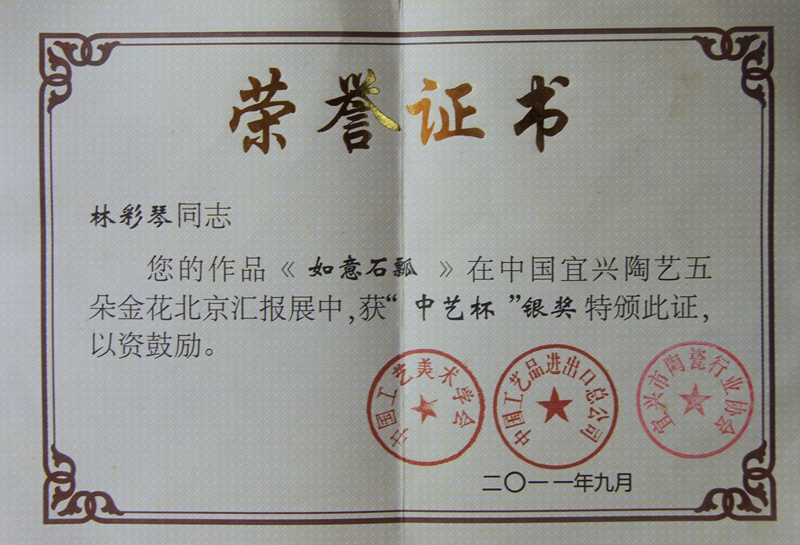 荣誉证书
林彩琴同志
您的作品《如意石瓢》在中国宜兴陶艺五
朵金花北京汇报展中,获“中艺杯”银奖特颁此证,
以资鼓励。
中国工艺美术学会
中国工艺品进出口总公司
宜兴市陶瓷行业协会
二〇一一年九月